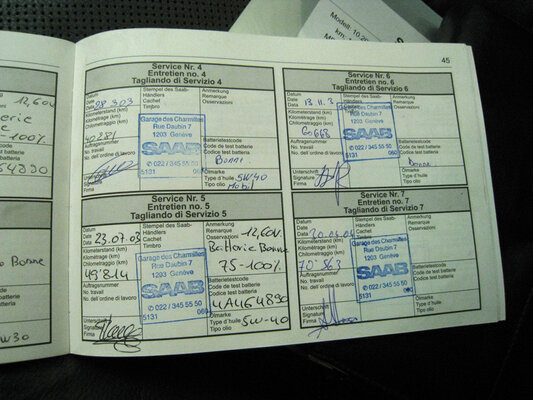 Modell:
45
12,60V
-100%
Bonne
W30
Service Nr. 4
Entretien no. 4
Tagliando di Servizio 4
Datum
Date
Data
28.3.03
Kilometerstand (km)
Kilométrage (km)
Chilometraggio (km)
40281
Auftragsnummer
No. travail
No. dell'ordine di lavoro
Unterschrift
Signature
Firma
Stempel des Saab-
Händlers
Cachet
Timbro
Garage des Charmilles
Rue Daubin 7
1203 Genève
SAAB
✆ 022 / 345 55 50
5131
Anmerkung
Remarque
Osservazioni
Batterietestcode
Code de test batterie
Codice test batteria
Bonne
Ölmarke
Type d'huile 5W40
Tipo olio Mobil
Service Nr. 6
Entretien no. 6
Tagliando di Servizio 6
Datum
Date
Data
13.11.3
Kilometerstand (km)
Kilométrage (km)
Chilometraggio (km)
60668
Auftragsnummer
No. travail
No. dell'ordine di lavoro
Unterschrift
Signature
Firma
Stempel des Saab-
Händlers
Garage des Charmilles
Rue Daubin 7
1203 Genève
SAAB
✆ 022 / 345 55 50
5131
Anmerkung
Remarque
Osservazioni
Batterietestcode
Code de test batterie
Codice test batteria
Bonne
Ölmarke
Type d'huile
Tipo olio
Service Nr. 5
Entretien no. 5
Tagliando di Servizio 5
Datum
Date
Data
23.07.03
Kilometerstand (km)
Kilométrage (km)
Chilometraggio (km)
49814
Auftragsnummer
No. travail
No. dell'ordine di lavoro
Unterschrift
Signature
Firma
Stempel des Saab-
Händlers
Cachet
Timbro
Garage des Charmilles
Rue Daubin 7
1203 Genève
SAAB
✆ 022 / 345 55 50
5131
Anmerkung
Remarque
Osservazioni
12,60V
Batterie Bonne
75-100%
Batterietestcode
Code de test batterie
Codice test batteria
4A464890
Ölmarke
Type d'huile
Tipo olio 5W-40
Service Nr. 7
Entretien no. 7
Tagliando di Servizio 7
Datum
Date
Data
Kilometerstand (km)
Kilométrage (km)
Chilometraggio (km)
70'563
Auftragsnummer
No. travail
No. dell'ordine di lavoro
Unterschrift
Signature
Firma
Stempel des Saab-
Händlers
Garage des Charmilles
Rue Daubin 7
1203 Genève
SAAB
✆ 022 / 345 55 50
5131
Anmerkung
Remarque
Osservazioni
Batterietestcode
Code de test batterie
Codice test batteria
Ölmarke
Type d'huile
Tipo olio